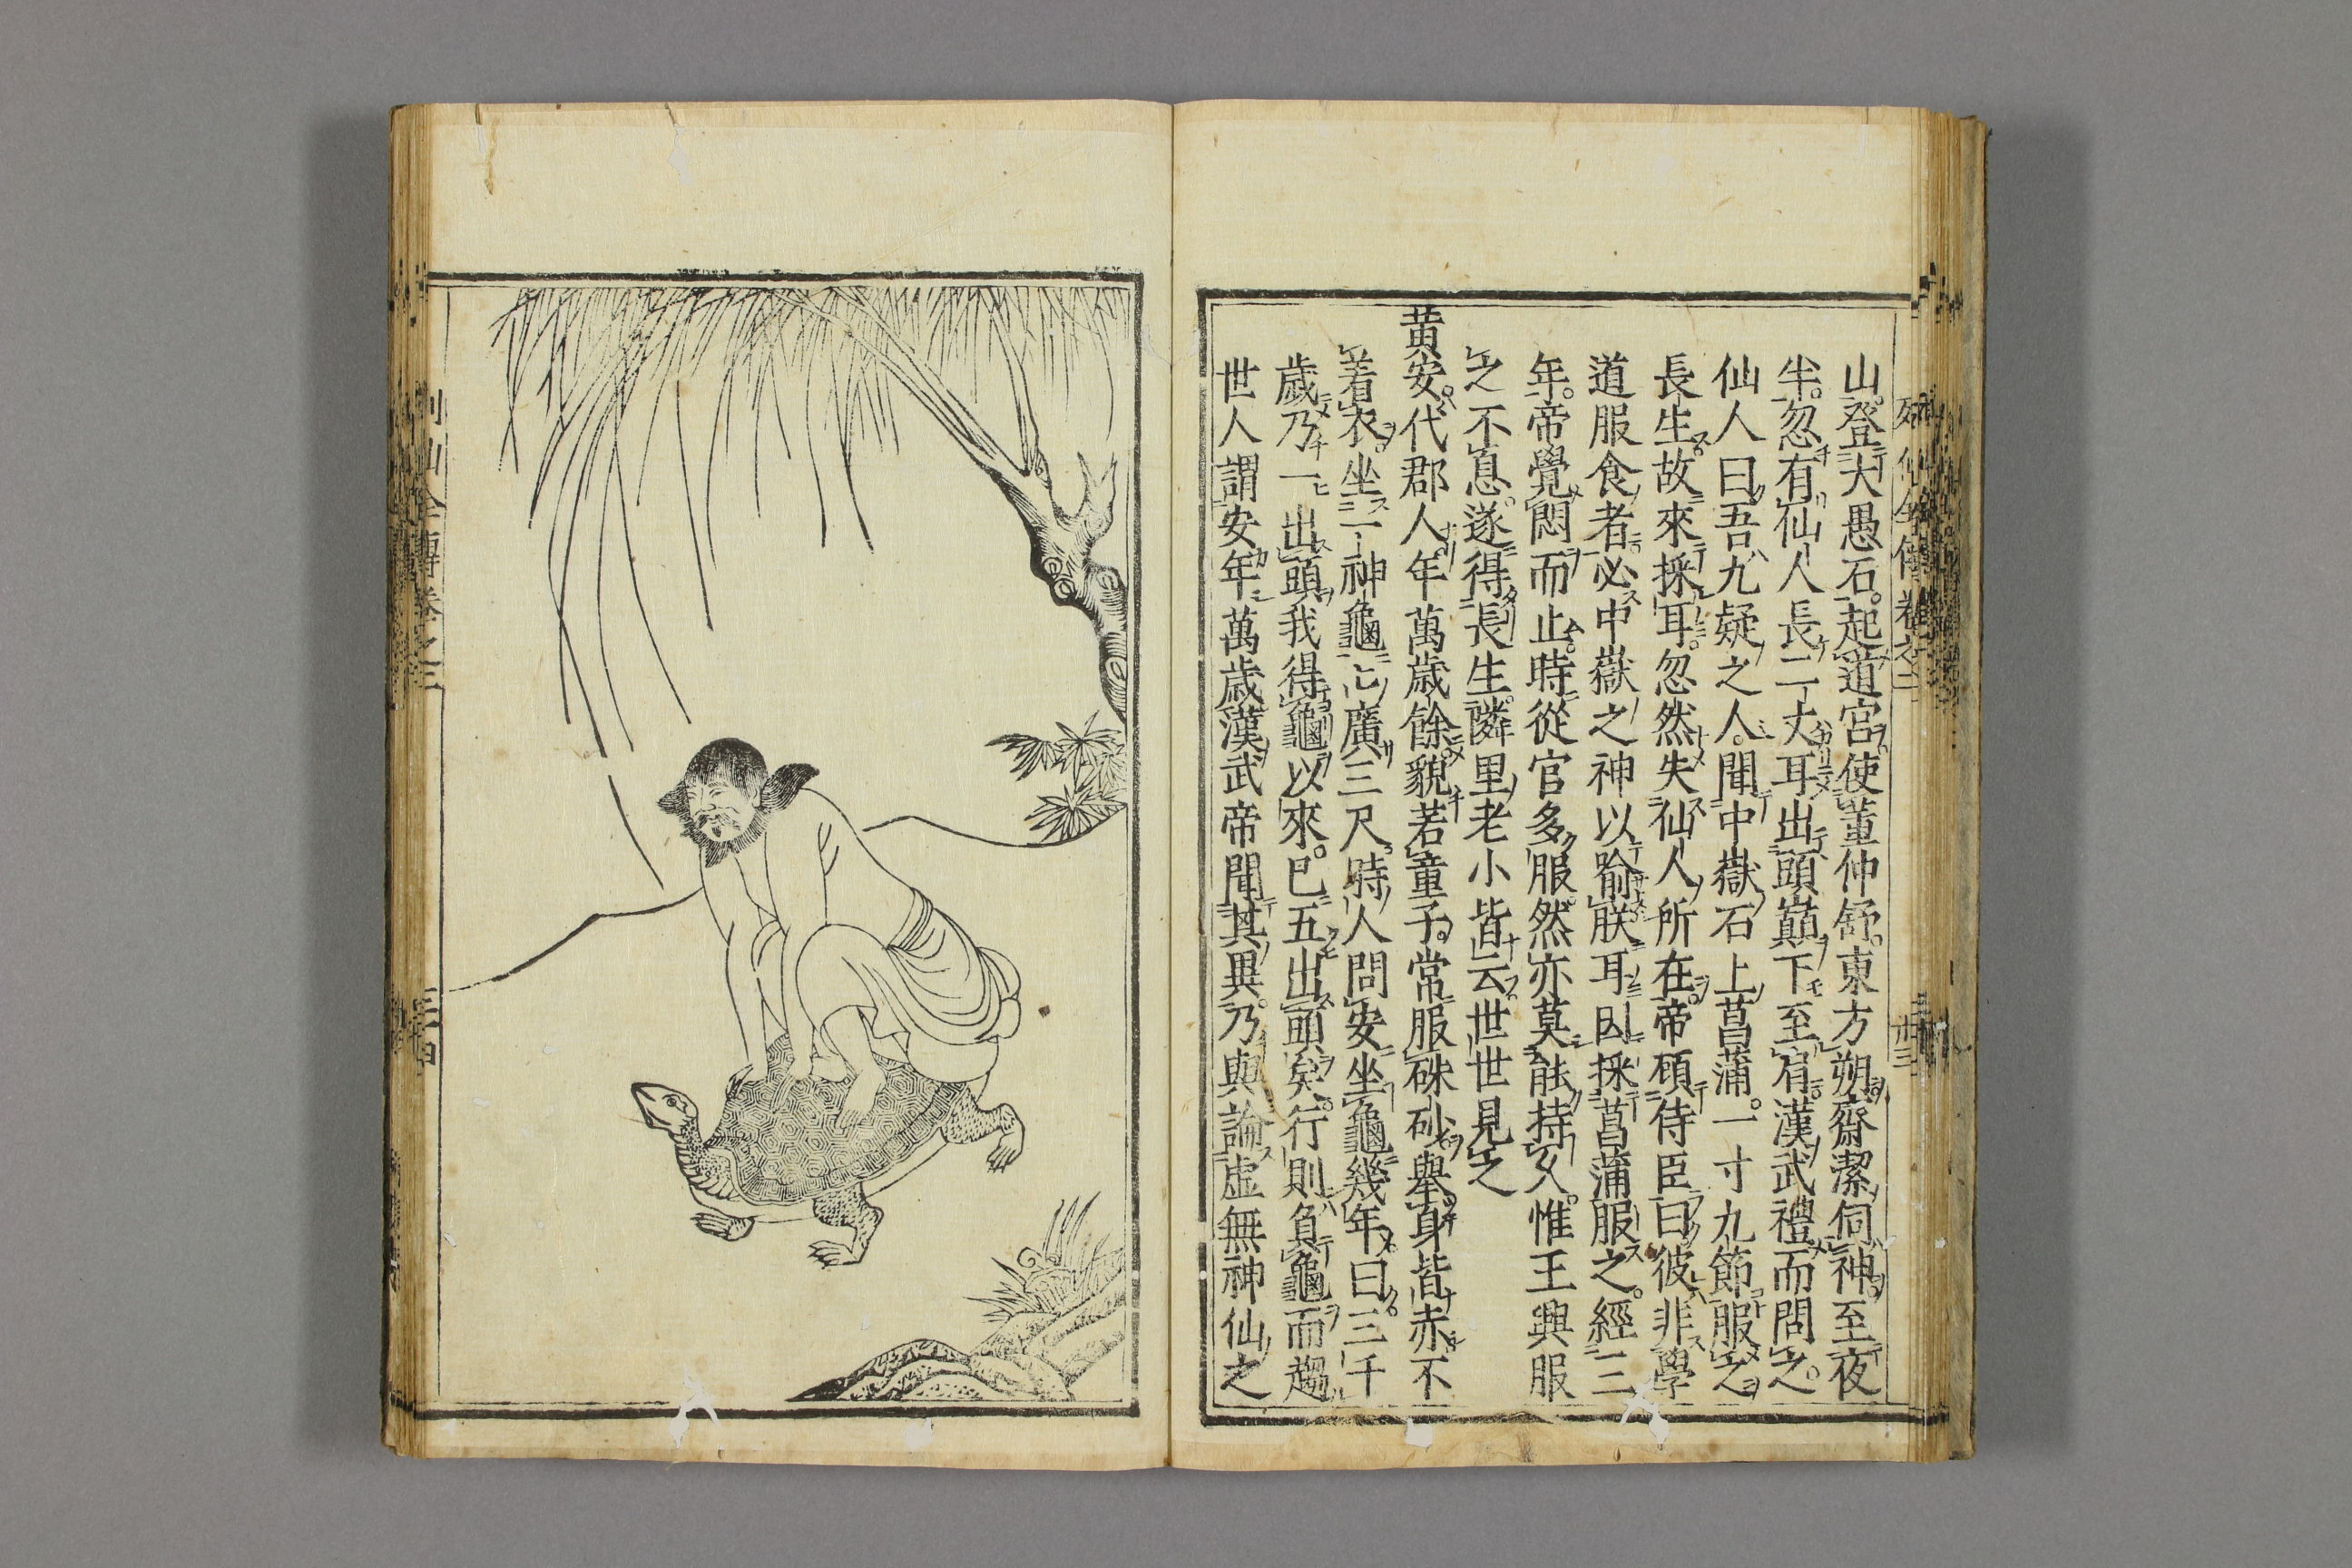 列仙全傳卷之二
山。登大愚石。起道宮。使董仲舒。東方朔齋潔伺神。至夜
半。忽有仙人長二丈耳出頭巔下至肩。漢武禮而問之。
仙人曰吾九疑之人。聞中嶽石上菖蒲。一寸九節服之
長生。故來採耳。忽然失仙人所在。帝顧侍臣曰彼非學
道服食者必中嶽之神以喻朕耳因採菖蒲服之。經三
年。帝覺悶而止。時從官多服。然亦莫能持久。惟王興服
之不息。遂得長生。隣里老小皆云世世見之
黄安。代郡人。年萬歳餘。貌若童子。常服硃砂。舉身皆赤。不
著衣。坐一神龜亡廣三尺時人問安坐龜幾年。曰。三千
歲乃一出頭我得龜以來。已五出頭矣。行則負龜而趨
世人謂安年萬歳漢武帝聞其異。乃與論虛無神仙之
列仙全傳卷之三